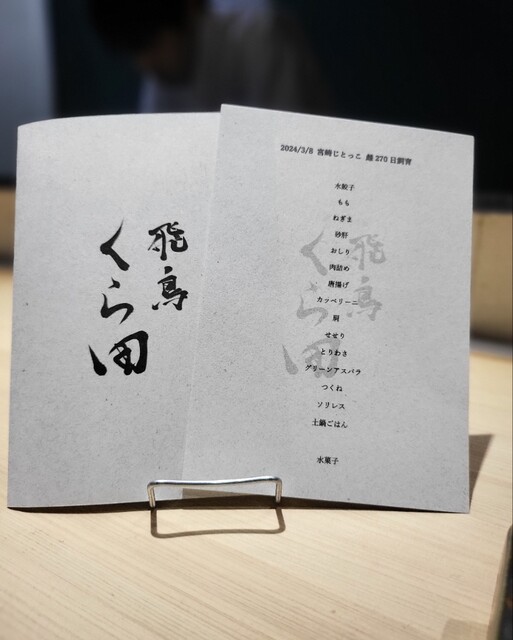 飛鳥
くら田
2024/3/8 宮崎じとっこ 雌270日飼育
水餃子
もも
ねぎま
砂肝
おしり
肉詰め
唐揚げ
カッペリーニ
胸
せせり
とりわさ
グリーンアスパラ
つくね
ソリレス
土鍋ごはん
水菓子
飛鳥
くら田